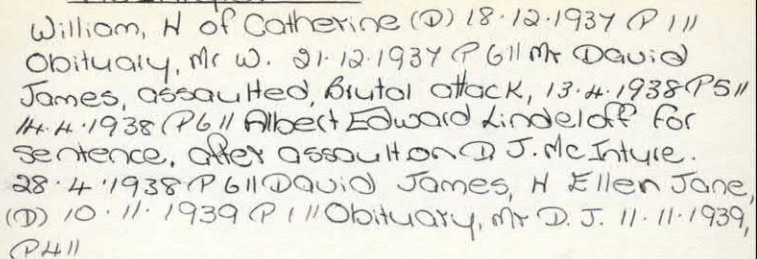 William, H of Catherine (D) 18.12.1937 P 1 ||
Obituary, Mr W. 21.12.1937 P 6 || Mr David
James, assaulted, Brutal attack, 13.4.1938 P5 ||
14.4.1938 (P6 || Albert Edward Lindeloff for
sentence, after assault on D J. McIntyre.
28.4.1938 P 6 || David James, H Ellen Jane,
(D) 10.11.1939 P 1 || Obituary, Mr D. J. 11.11.1939,
P4 ||